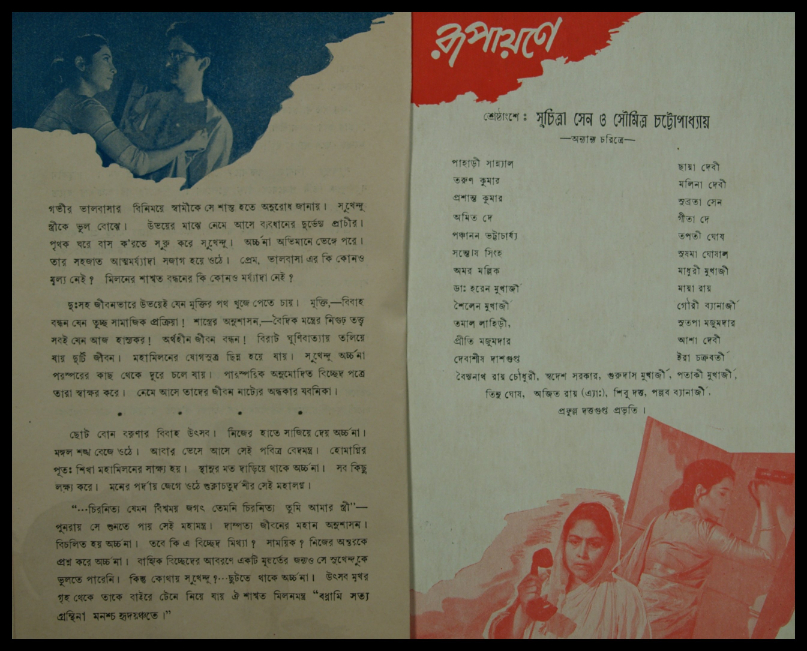 গভীর ভালবাসার বিনিময়ে স্বামীকে সে শান্ত হতে অনুরোধ জানায়। সুখেন্দু
স্ত্রীকে ভুল বোঝে। উভয়ের মাঝে নেমে আসে ব্যবধানের দুর্ভেদ্য প্রাচীর।
পৃথক ঘরে বাস ক'রতে সুরু করে সুখেন্দু। অর্চ্চনা অভিমানে ভেঙ্গে পরে।
তার সহজাত আত্মমর্য্যাদা সজাগ হয়ে ওঠে। প্রেম, ভালবাসা এর কি কোনও
মূল্য নেই? মিলনের শাশ্বত বন্ধনের কি কোনও মর্য্যাদা নেই?
দুঃসহ জীবনভারে উভয়েই যেন মুক্তির পথ খুজে পেতে চায়। মুক্তি,—বিবাহ
বন্ধন যেন তুচ্ছ সামাজিক প্রক্রিয়া! শাস্ত্রের অনুশাসন,—বৈদিক মন্ত্রের নিগুঢ় তত্ত্ব
সবই যেন আজ হাস্যকর! অর্থহীন জীবন বন্ধন! বিরাট ঘুর্ণিবাত্যায় তলিয়ে
যায় দুটি জীবন। মহামিলনের যোগসুত্র ছিন্ন হয়ে যায়। সুখেন্দু অর্চ্চনা
পরস্পরের কাছ থেকে দূরে চলে যায়। পারস্পরিক অনুমোদিত বিচ্ছেদ পত্রে
তারা স্বাক্ষর করে। নেমে আসে তাদের জীবন নাট্যের অন্ধকার যবনিকা।
* * * *
ছোট বোন বরুণার বিবাহ উৎসব। নিজের হাতে সাজিয়ে দেয় অর্চ্চনা।
মঙ্গল শঙ্খ বেজে ওঠে। আবার ভেসে আসে সেই পবিত্র বেদমন্ত্র। হোমাগ্নির
পূতঃ শিখা মহামিলনের সাক্ষ্য হয়। স্থানুর মত দাঁড়িয়ে থাকে অর্চ্চনা। সব কিছু
লক্ষ্য করে। মনের পর্দায় জেগে ওঠে শুক্লাচতুর্দশীর সেই মহালগ্ন।
"···চিরনিত্য যেমন বিশ্বময় জগৎ তেমনি চিরনিত্য তুমি আমার স্ত্রী"—
পুনরায় সে শুনতে পায় সেই মহামন্ত্র। দাম্পত্য জীবনের মহান অনুশাসন।
বিচলিত হয় অর্চ্চনা। তবে কি এ বিচ্ছেদ মিথ্যা? সাময়িক? নিজের অন্তরকে
প্রশ্ন করে অর্চ্চনা। বাহ্যিক বিচ্ছেদের আবরণে একটি মুহূর্তের জন্যও সে সুখেন্দুকে
ভুলতে পারেনি। কিন্তু কোথায় সুখেন্দু?···ছুটতে থাকে অর্চ্চনা। উৎসব মুখর
গৃহ থেকে তাকে বাইরে টেনে নিয়ে যায় ঐ শাশ্বত মিলনমন্ত্র "বধ্নামি সত্য
গ্রন্থিনা মনশ্চ হৃদয়ঞ্চতে।"
রূপায়ণে
শ্রেষ্ঠাংশে : সুচিত্রা সেন ও সৌমিত্র চট্টোপাধ্যায়
—অন্যান্য চরিত্রে—
পাহাড়ী সান্ন্যাল
তরুণ কুমার
প্রশান্ত কুমার
অমিত দে
পঞ্চানন ভট্টাচার্য্য
সন্তোষ সিংহ
অমর মল্লিক
ডাঃ হরেন মুখার্জী
শৈলেন মুখার্জী
তমাল লাহিড়ী,
প্রীতি মজুমদার
দেবাশীষ দাশগুপ্ত
ছায়া দেবী
মলিনা দেবী
সুব্রতা সেন
গীতা দে
তপতী ঘোষ
সুষমা ঘোষাল
মাধুরী মুখার্জী
মায়া রায়
গৌরী ব্যানার্জী
সুতপা মজুমদার
আশা দেবী
ইরা চক্রবর্তী
বৈদ্যনাথ রায় চৌধুরী, স্বদেশ সরকার, গুরুদাস মুখার্জী, পতাকী মুখার্জী,
তিনু ঘোষ, অজিত রায় (এ্যাঃ), শিবু দত্ত, পল্লব ব্যানার্জী,
প্রফুল্ল দত্তগুপ্ত প্রভৃতি।